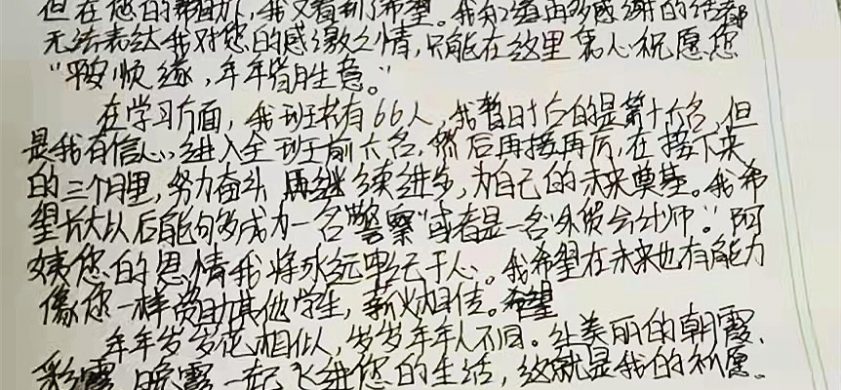 但在您的帮助下,我又看到了希望。我知道再多感谢的话都
无法表达我对您的感激之情,只能在这里衷心祝愿您
“平安顺遂,年年皆胜意。”
在学习方面,我班共有66人,我暂时排的是第十六名,但
是我有信心进入全班前六名,然后再接再厉,在接下来
的三个月里,努力奋斗 再继续进步,为自己的未来奠基。我希
望长大以后能够多成为一名“警察”或者是一名“外贸会计师”。阿
姨您的恩情我将永远牢记于心。我希望在未来也有能力
像您一样资助其他学生,薪火相传。希望
年年岁岁花相似,岁岁年年人不同。让美丽的朝霞、
彩霞、晚霞一起飞进您的生活,这就是我的祝愿。